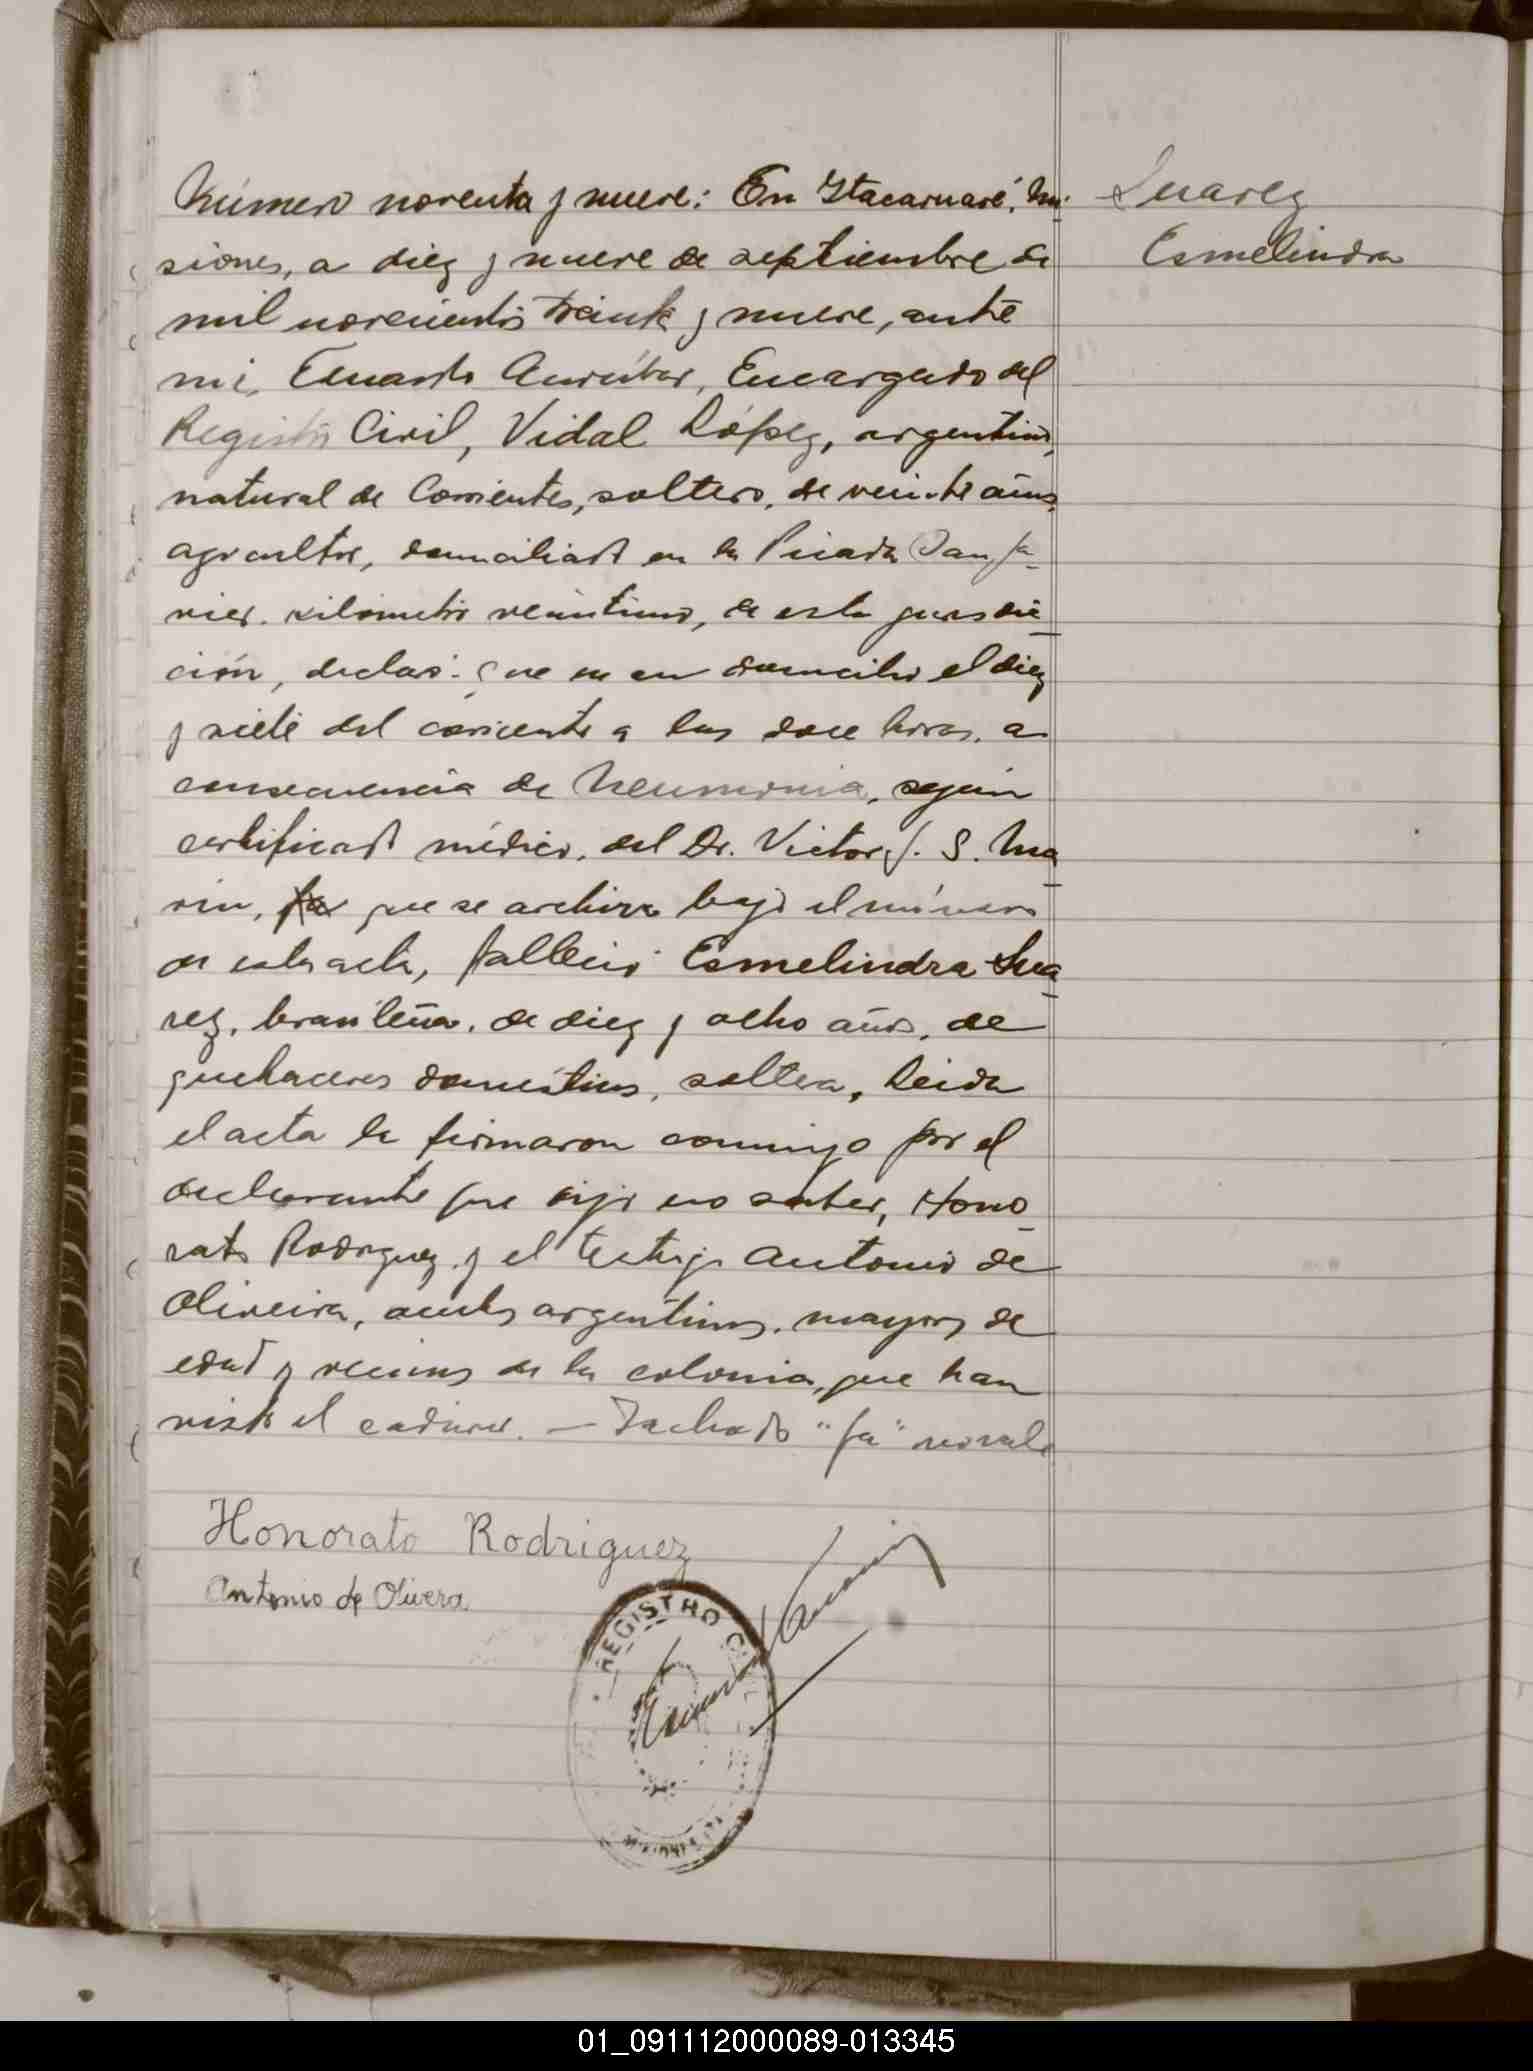 Número noventa y nueve: En Itacaruaré, Mi-
siones, a diez y nueve de septiembre de
mil novecientos treinta y nueve, ante
mi, Eduardo, Encargado del
Registro Civil, Vidal López, argentino,
natural de Corrientes, soltero, de veinte años,
agricultor, domiciliado en la Picada San Ja-
vier, kilómetro veintiuno, de esta jurisdic-
ción, declaró: que en su domicilio el diez
y siete del corriente a las doce horas, a
consecuencia de Neumonia, según
certificado médico, del Dr. Victor J. S. Ma-
rin, fa que se archiva bajo el número
de esta acta, falleció Esmelindra Sua-
rez, brasileña, de diez y ocho años, de
quehaceres domésticos, soltera, Leida
el acta la firmaron conmigo por el
declarante que dijo no saber, Hono-
rato Rodriguez y el testigo Antonio de
Oliveira, ambos argentinos, mayores de
edad y vecinos de la colonia, que han
visto el cadáver. — Tachado "fa" no vale
Suarez
Esmelindra
Honorato Rodriguez
Antonio de Olivera
REGISTRO CIVIL
01_091112000089-013345